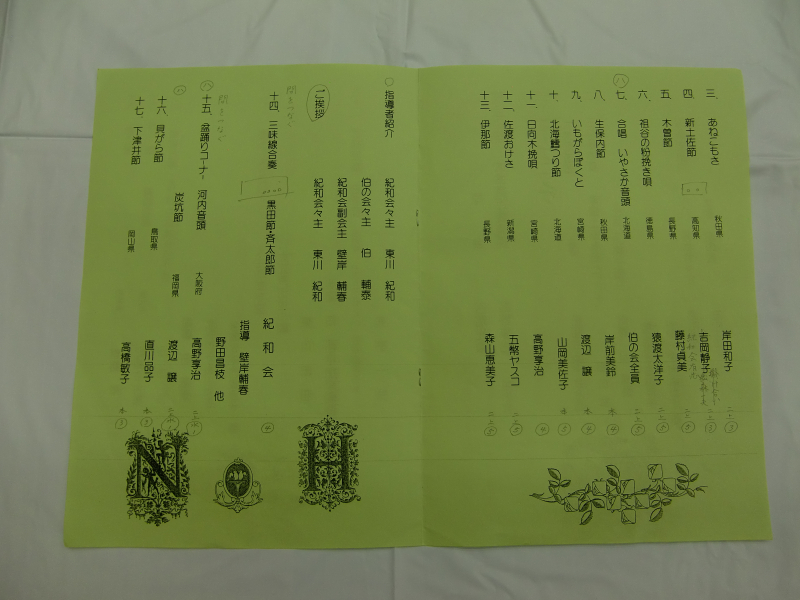 三、 あねこもさ 秋田県 岸田和子
四、 新土佐節 高知県 吉岡静子
五、 木曽節 長野県 藤村貞美
六、 祖谷の粉挽き唄 徳島県 猿渡太洋子
七、 合唱 いやさか音頭 北海道 伯の会全員
八、 生保内節 秋田県 岸前美鈴
九、 いもがらぼくと 宮崎県 渡辺 譲
十、 北海鱈つり節 北海道 山岡美佐子
十一、 日向木挽唄 宮崎県 高野享治
十二、 佐渡おけさ 新潟県 五幣ヤスコ
十三、 伊那節 長野県 森山恵美子
指導者紹介 紀和会々主 東川 紀和
伯の会々主 伯 輔泰
紀和会副会主 壁岸 輔春
ご挨拶 紀和会々主 東川 紀和
十四、 三味線合奏 黒田節・斉太郎節 紀和会
指導 壁岸輔春
野田昌枝 他
十五、 盆踊りコーナー 河内音頭 大阪府 高野享治
炭坑節 福岡県 渡辺 譲
十六、 貝がら節 鳥取県 直川品子
十七、 下津井節 岡山県 高橋敏子
H
N